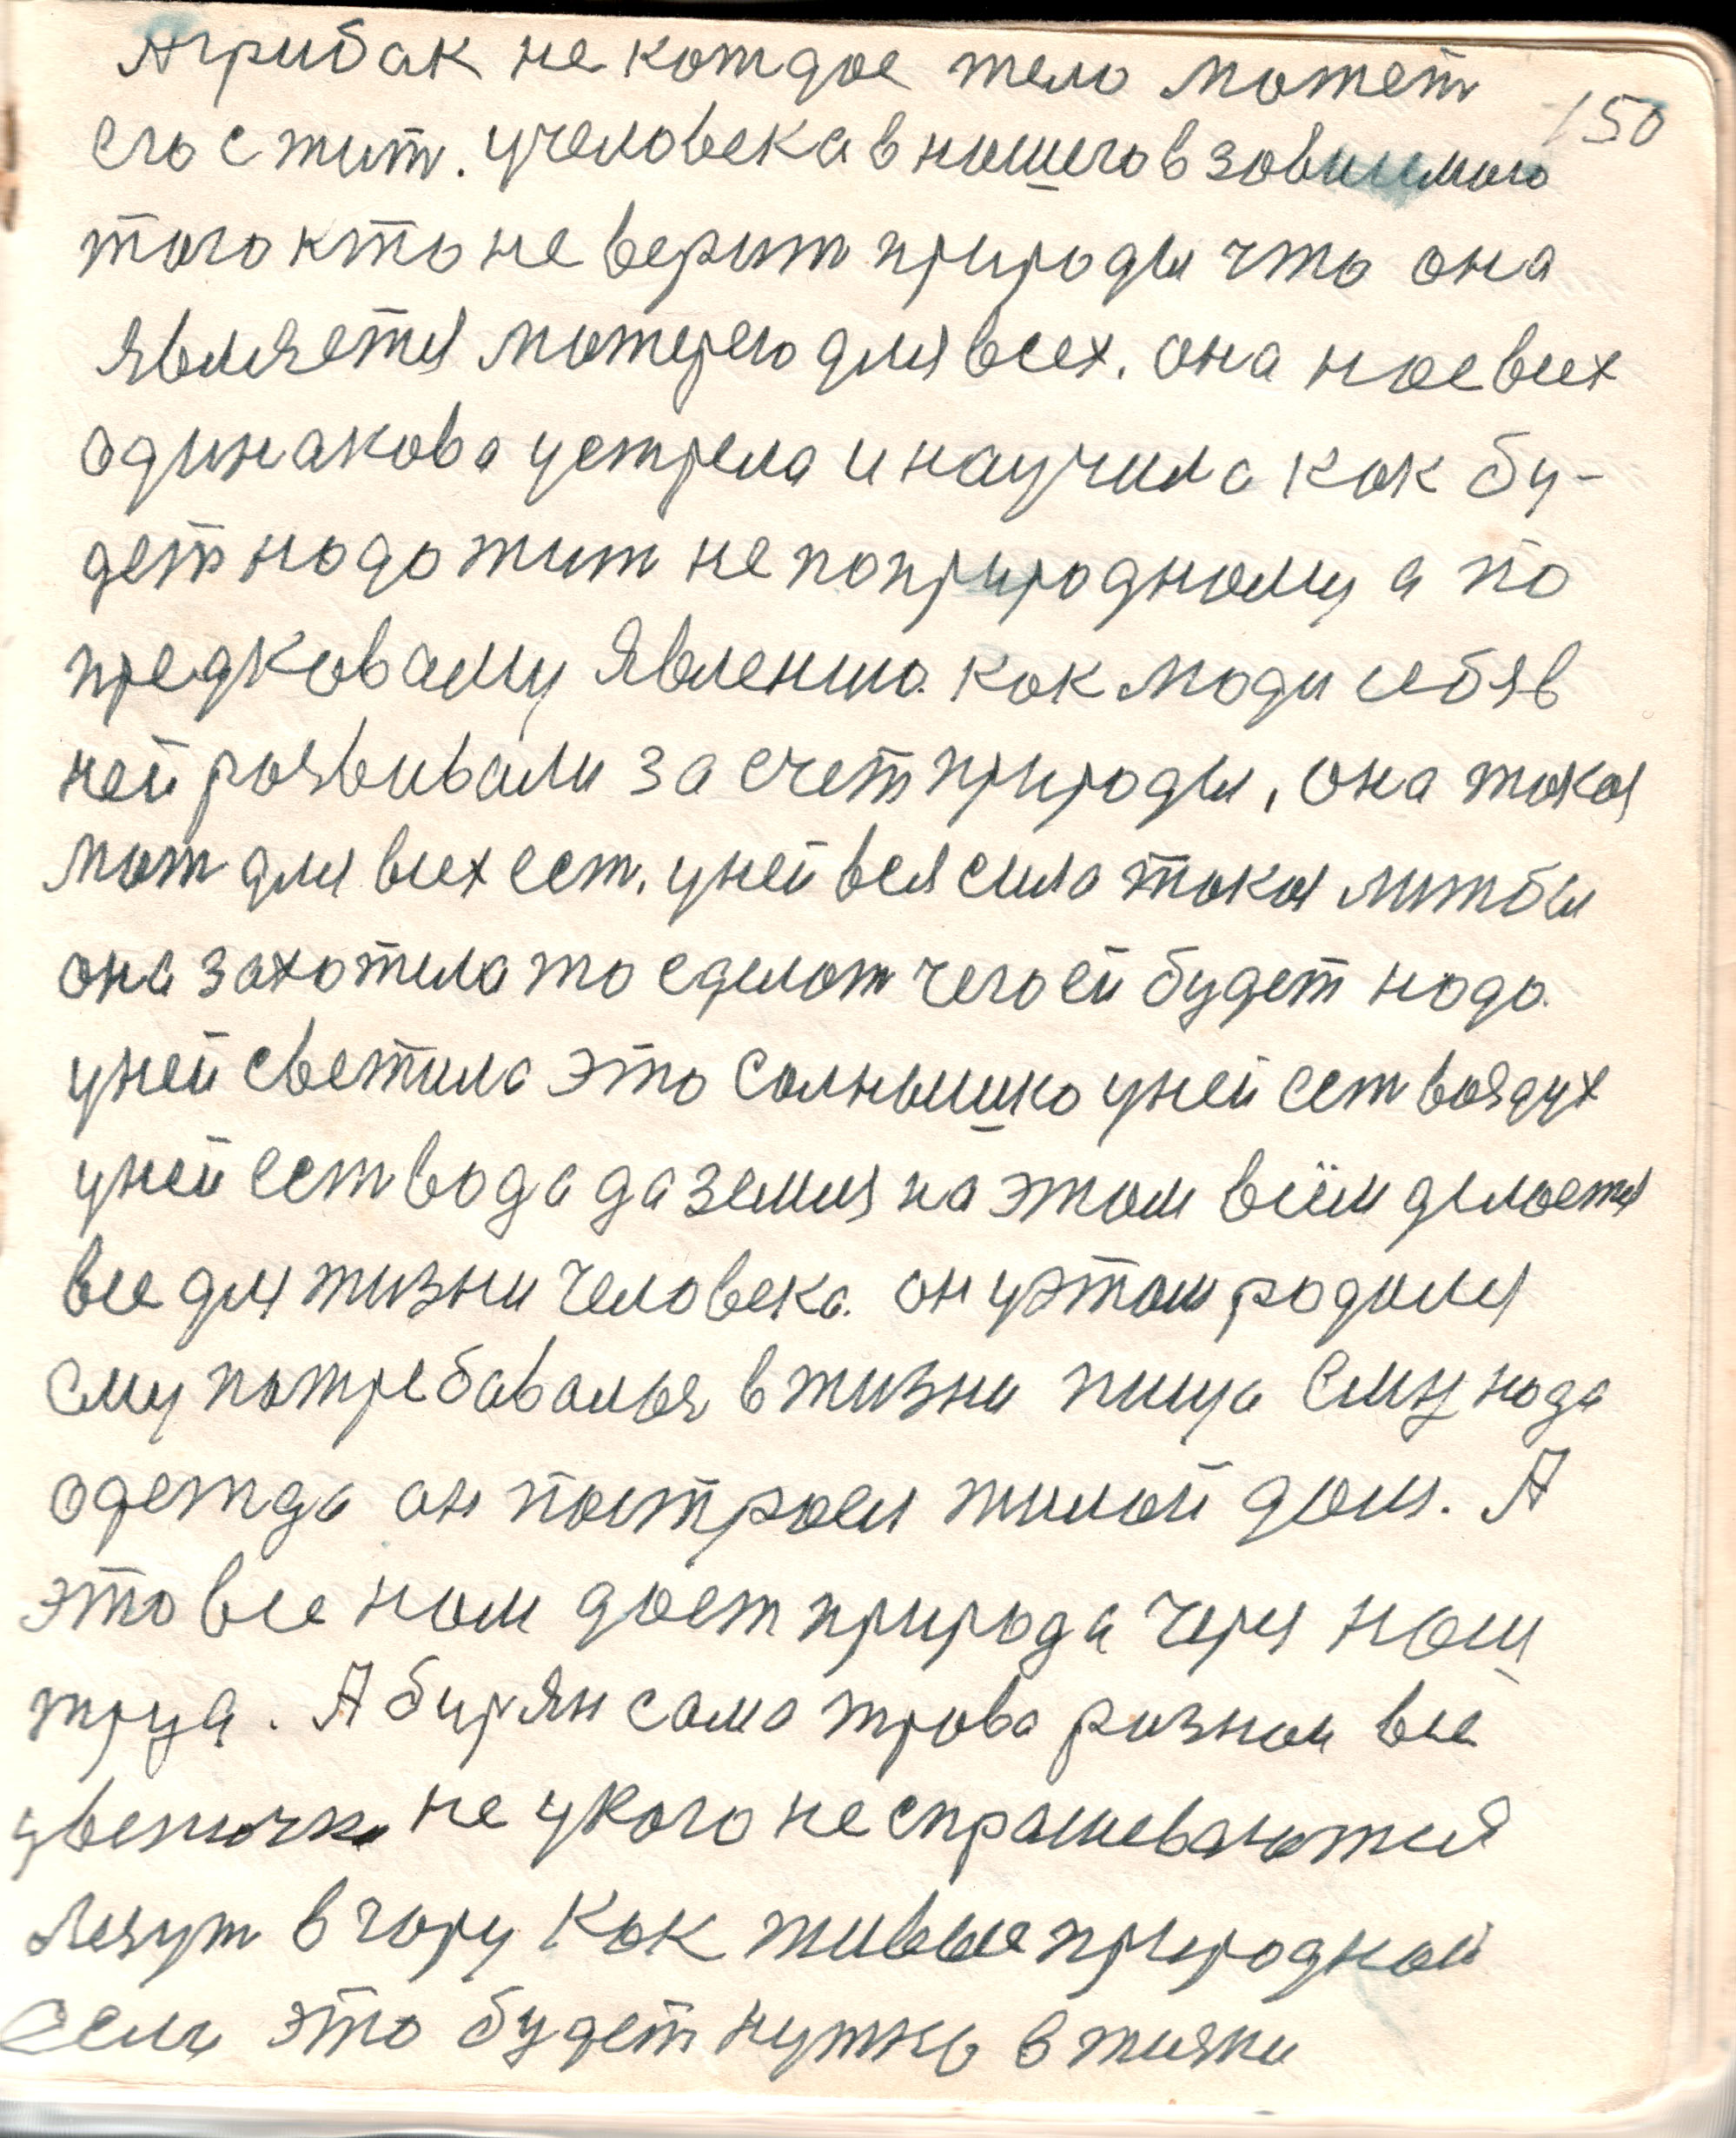 А грибак не кождое тело может
150
его с жит. у человека в нашего взовиимого
того кто не верит природы что она
является матерею для всех. она нас всех
одинакова устрела и научила как бу-
дет надо жит не поприродному а по
предковаму явлению. как люди себя в
ней розвивали за счет природы, она такая
мат для всех ест. у ней вся сила такая литбы
она захотила то сделат чего ей будет надо.
у ней светила это солнышко у ней ест воздух
у ней ест вода да земля на этом всём делается
все для жизни человека. он у этом родился
ему потребавалья в жизни пища ему нада
одежда он построел жилой дом. А
это все нам дает природа через наш
труд. А бурян сама трова рознои все
цветочки не укого не спрашеваются
лезут в гору как живые природной
если это будет нужно в жизни